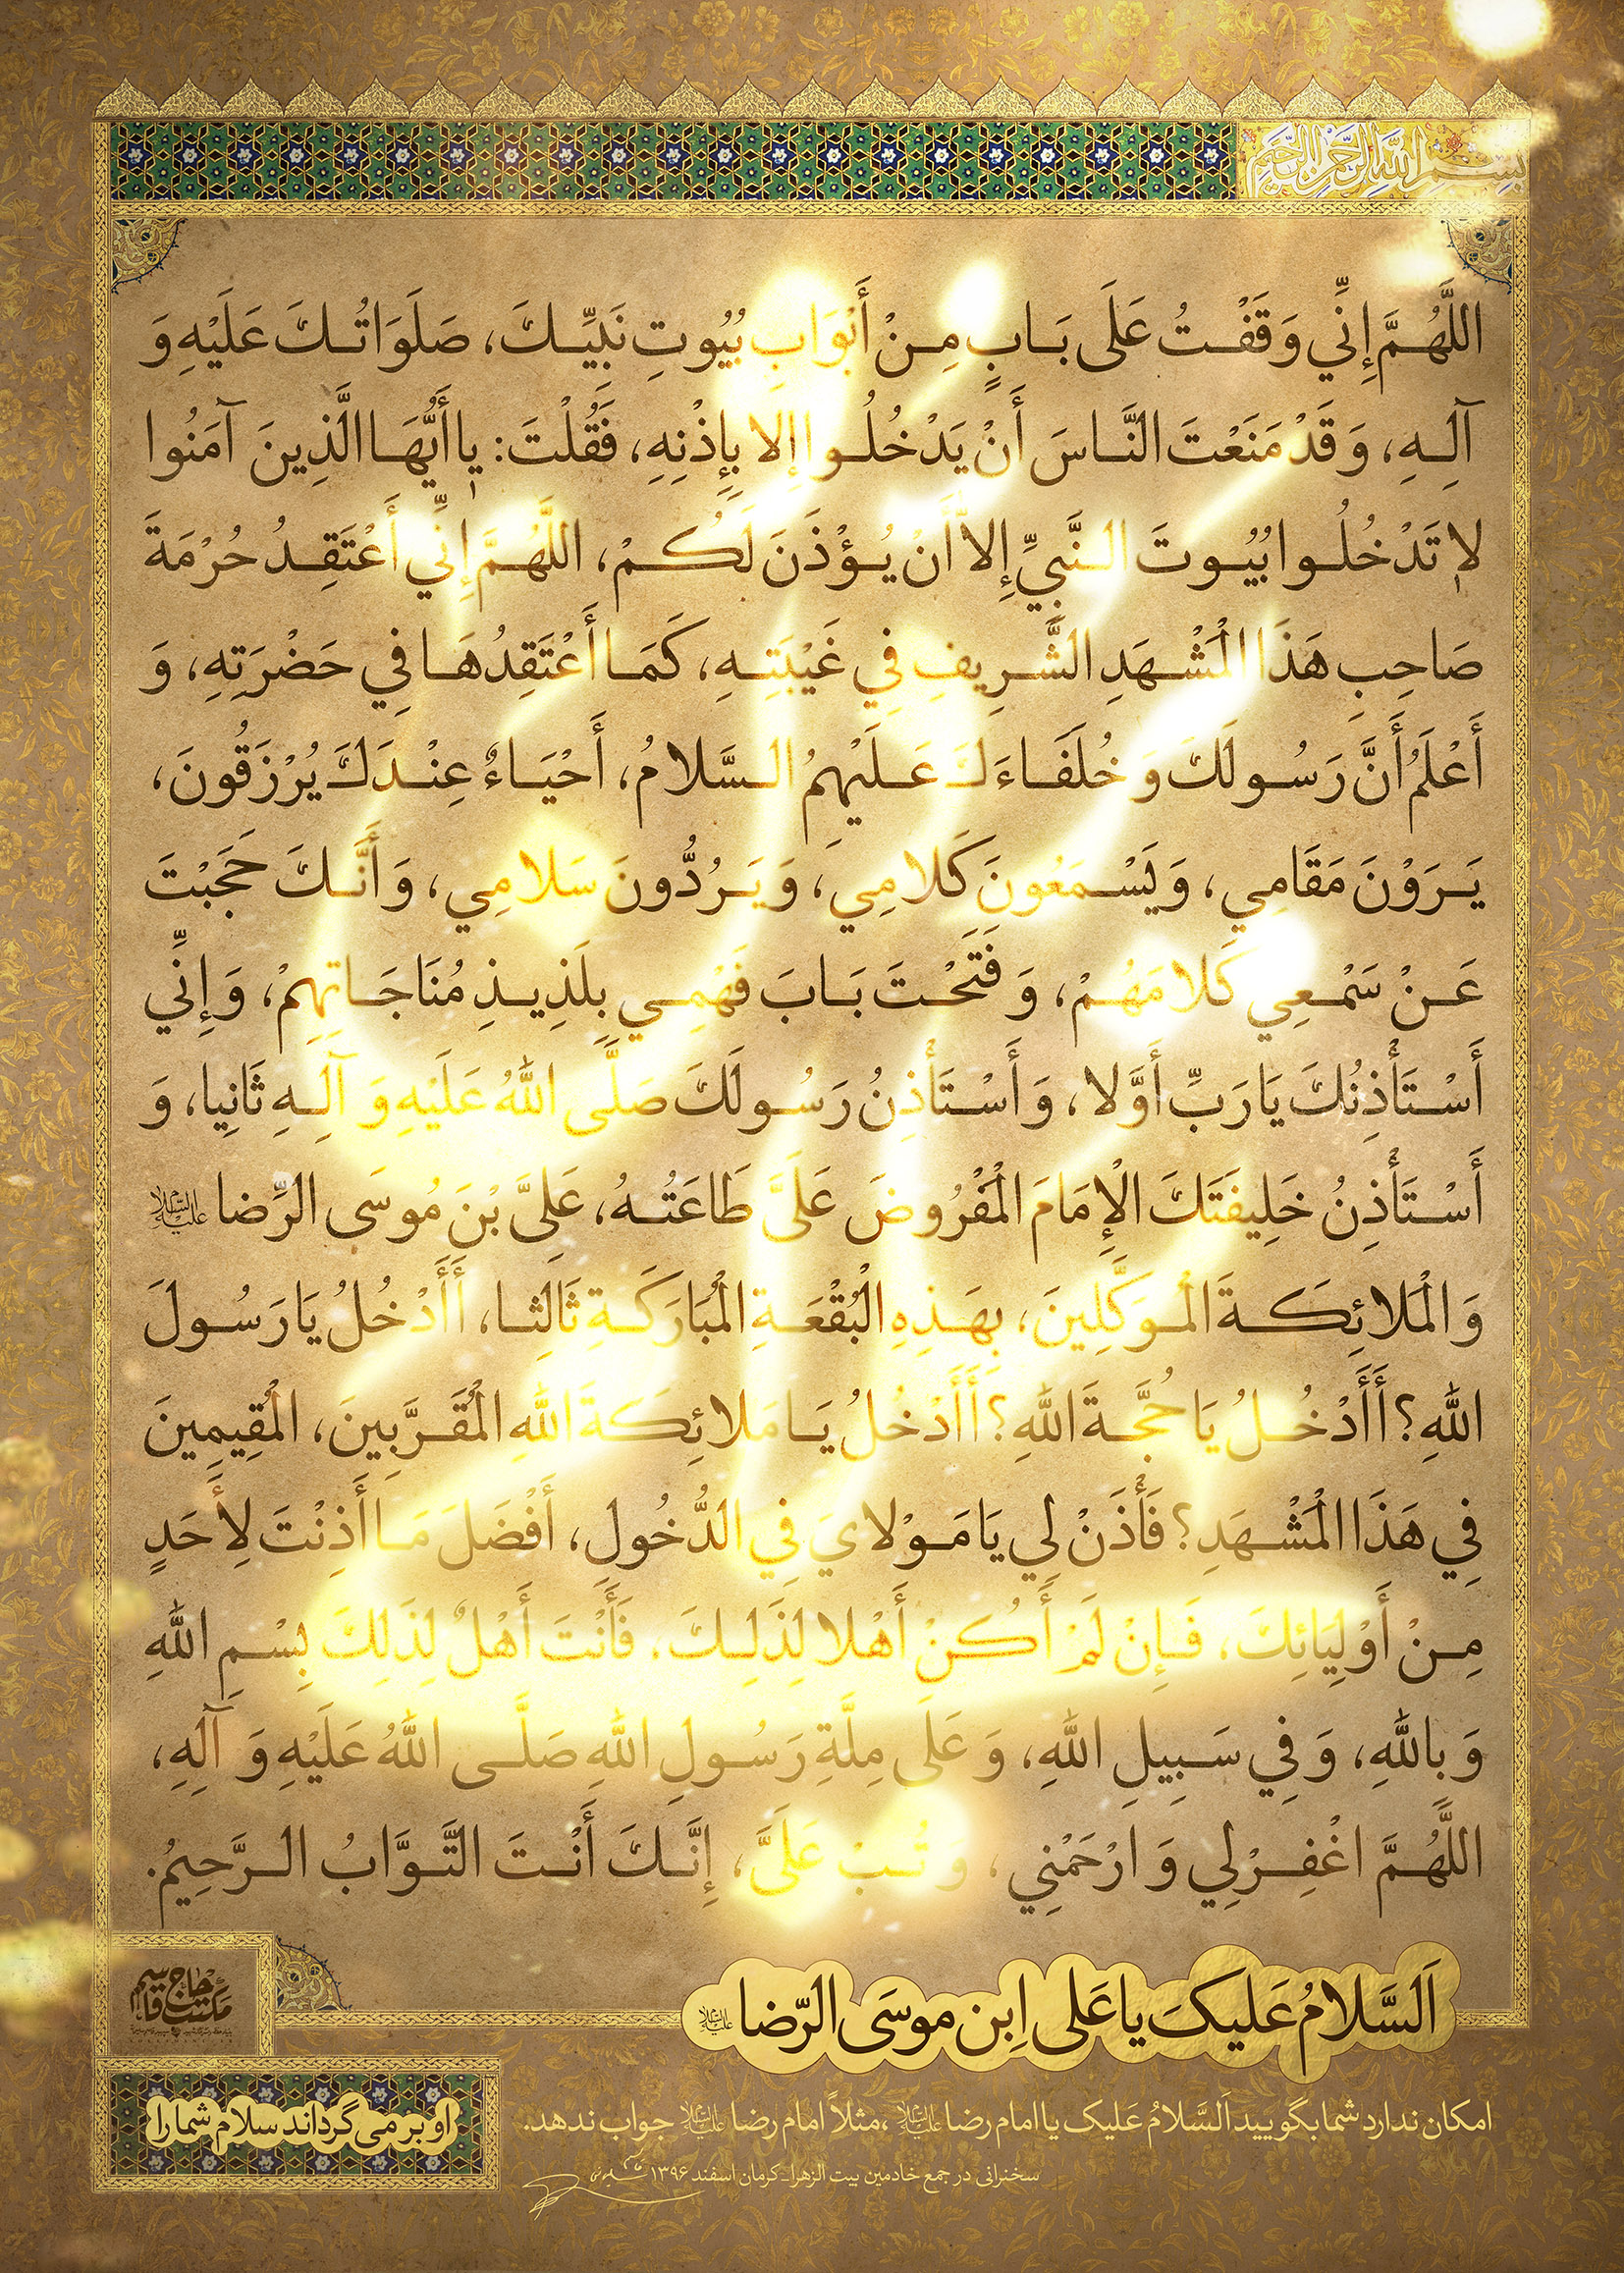 بِسْمِ اللَّهِ الرَّحْمَنِ الرَّحِيمِ
اللَّهُمَّ إِنِّي وَقَفْتُ عَلَى بَابٍ مِنْ أَبْوَابِ بُيُوتِ نَبِيِّكَ، صَلَوَاتُكَ عَلَيْهِ وَ
آلِهِ، وَ قَدْ مَنَعْتَ النَّاسَ أَنْ يَدْخُلُوا إِلا بِإِذْنِهِ، فَقُلْتَ: يا أَيُّهَا الَّذِينَ آمَنُوا
لا تَدْخُلُوا بُيُوتَ النَّبِيِّ إِلا أَنْ يُؤْذَنَ لَكُمْ، اللَّهُمَّ إِنِّي أَعْتَقِدُ حُرْمَةَ
صَاحِبِ هَذَا الْمَشْهَدِ الشَّرِيفِ فِي غَيْبَتِهِ، كَمَا أَعْتَقِدُهَا فِي حَضْرَتِهِ، وَ
أَعْلَمُ أَنَّ رَسُولَكَ وَ خُلَفَاءَكَ عَلَيْهِمُ السَّلامُ، أَحْيَاءٌ عِنْدَكَ يُرْزَقُونَ،
يَرَوْنَ مَقَامِي، وَ يَسْمَعُونَ كَلامِي، وَ يَرُدُّونَ سَلامِي، وَ أَنَّكَ حَجَبْتَ
عَنْ سَمْعِي كَلامَهُمْ، وَ فَتَحْتَ بَابَ فَهْمِي بِلَذِيذِ مُنَاجَاتِهِمْ، وَ إِنِّي
أَسْتَأْذِنُكَ يَا رَبِّ أَوَّلا، وَ أَسْتَأْذِنُ رَسُولَكَ صَلَّى اللَّهُ عَلَيْهِ وَ آلِهِ ثَانِيا، وَ
أَسْتَأْذِنُ خَلِيفَتَكَ الْإِمَامَ الْمَفْرُوضَ عَلَيَّ طَاعَتُهُ، عَلِىَّ بْنَ مُوسَى الرِّضا علیه‌السلام
وَ الْمَلائِكَةَ الْمُوَكَّلِينَ، بِهَذِهِ الْبُقْعَةِ الْمُبَارَكَةِ ثَالِثا، أَأَدْخُلُ يَا رَسُولَ
اللَّهِ؟ أَأَدْخُلُ يَا حُجَّةَ اللَّهِ؟ أَأَدْخُلُ يَا مَلائِكَةَ اللَّهِ الْمُقَرَّبِينَ، الْمُقِيمِينَ
فِي هَذَا الْمَشْهَدِ؟ فَأْذَنْ لِي يَا مَوْلايَ فِي الدُّخُولِ، أَفْضَلَ مَا أَذِنْتَ لِأَحَدٍ
مِنْ أَوْلِيَائِكَ، فَإِنْ لَمْ أَكُنْ أَهْلا لِذَلِكَ، فَأَنْتَ أَهْلٌ لِذَلِكَ بِسْمِ اللَّهِ
وَ بِاللَّهِ، وَ فِي سَبِيلِ اللَّهِ، وَ عَلَى مِلَّةِ رَسُولِ اللَّهِ صَلَّى اللَّهُ عَلَيْهِ وَ آلِهِ،
اللَّهُمَّ اغْفِرْ لِي وَ ارْحَمْنِي، وَ تُبْ عَلَيَّ، إِنَّكَ أَنْتَ التَّوَّابُ الرَّحِيمُ.
اَلسَّلامُ عَلیکَ یا عَلی اِبن موسَی الرّضا علیه‌السلام
مکتب حاج قاسم
امکان ندارد شما بگویید اَلسَّلامُ عَلیک یا امام رضا علیه‌السلام، مثلاً امام رضا علیه‌السلام جواب ندهد.
او بر می گرداند سلام شما را
سخنرانی در جمع خادمین بیت الزهرا_کرمان اسفند ۱۳۹۶